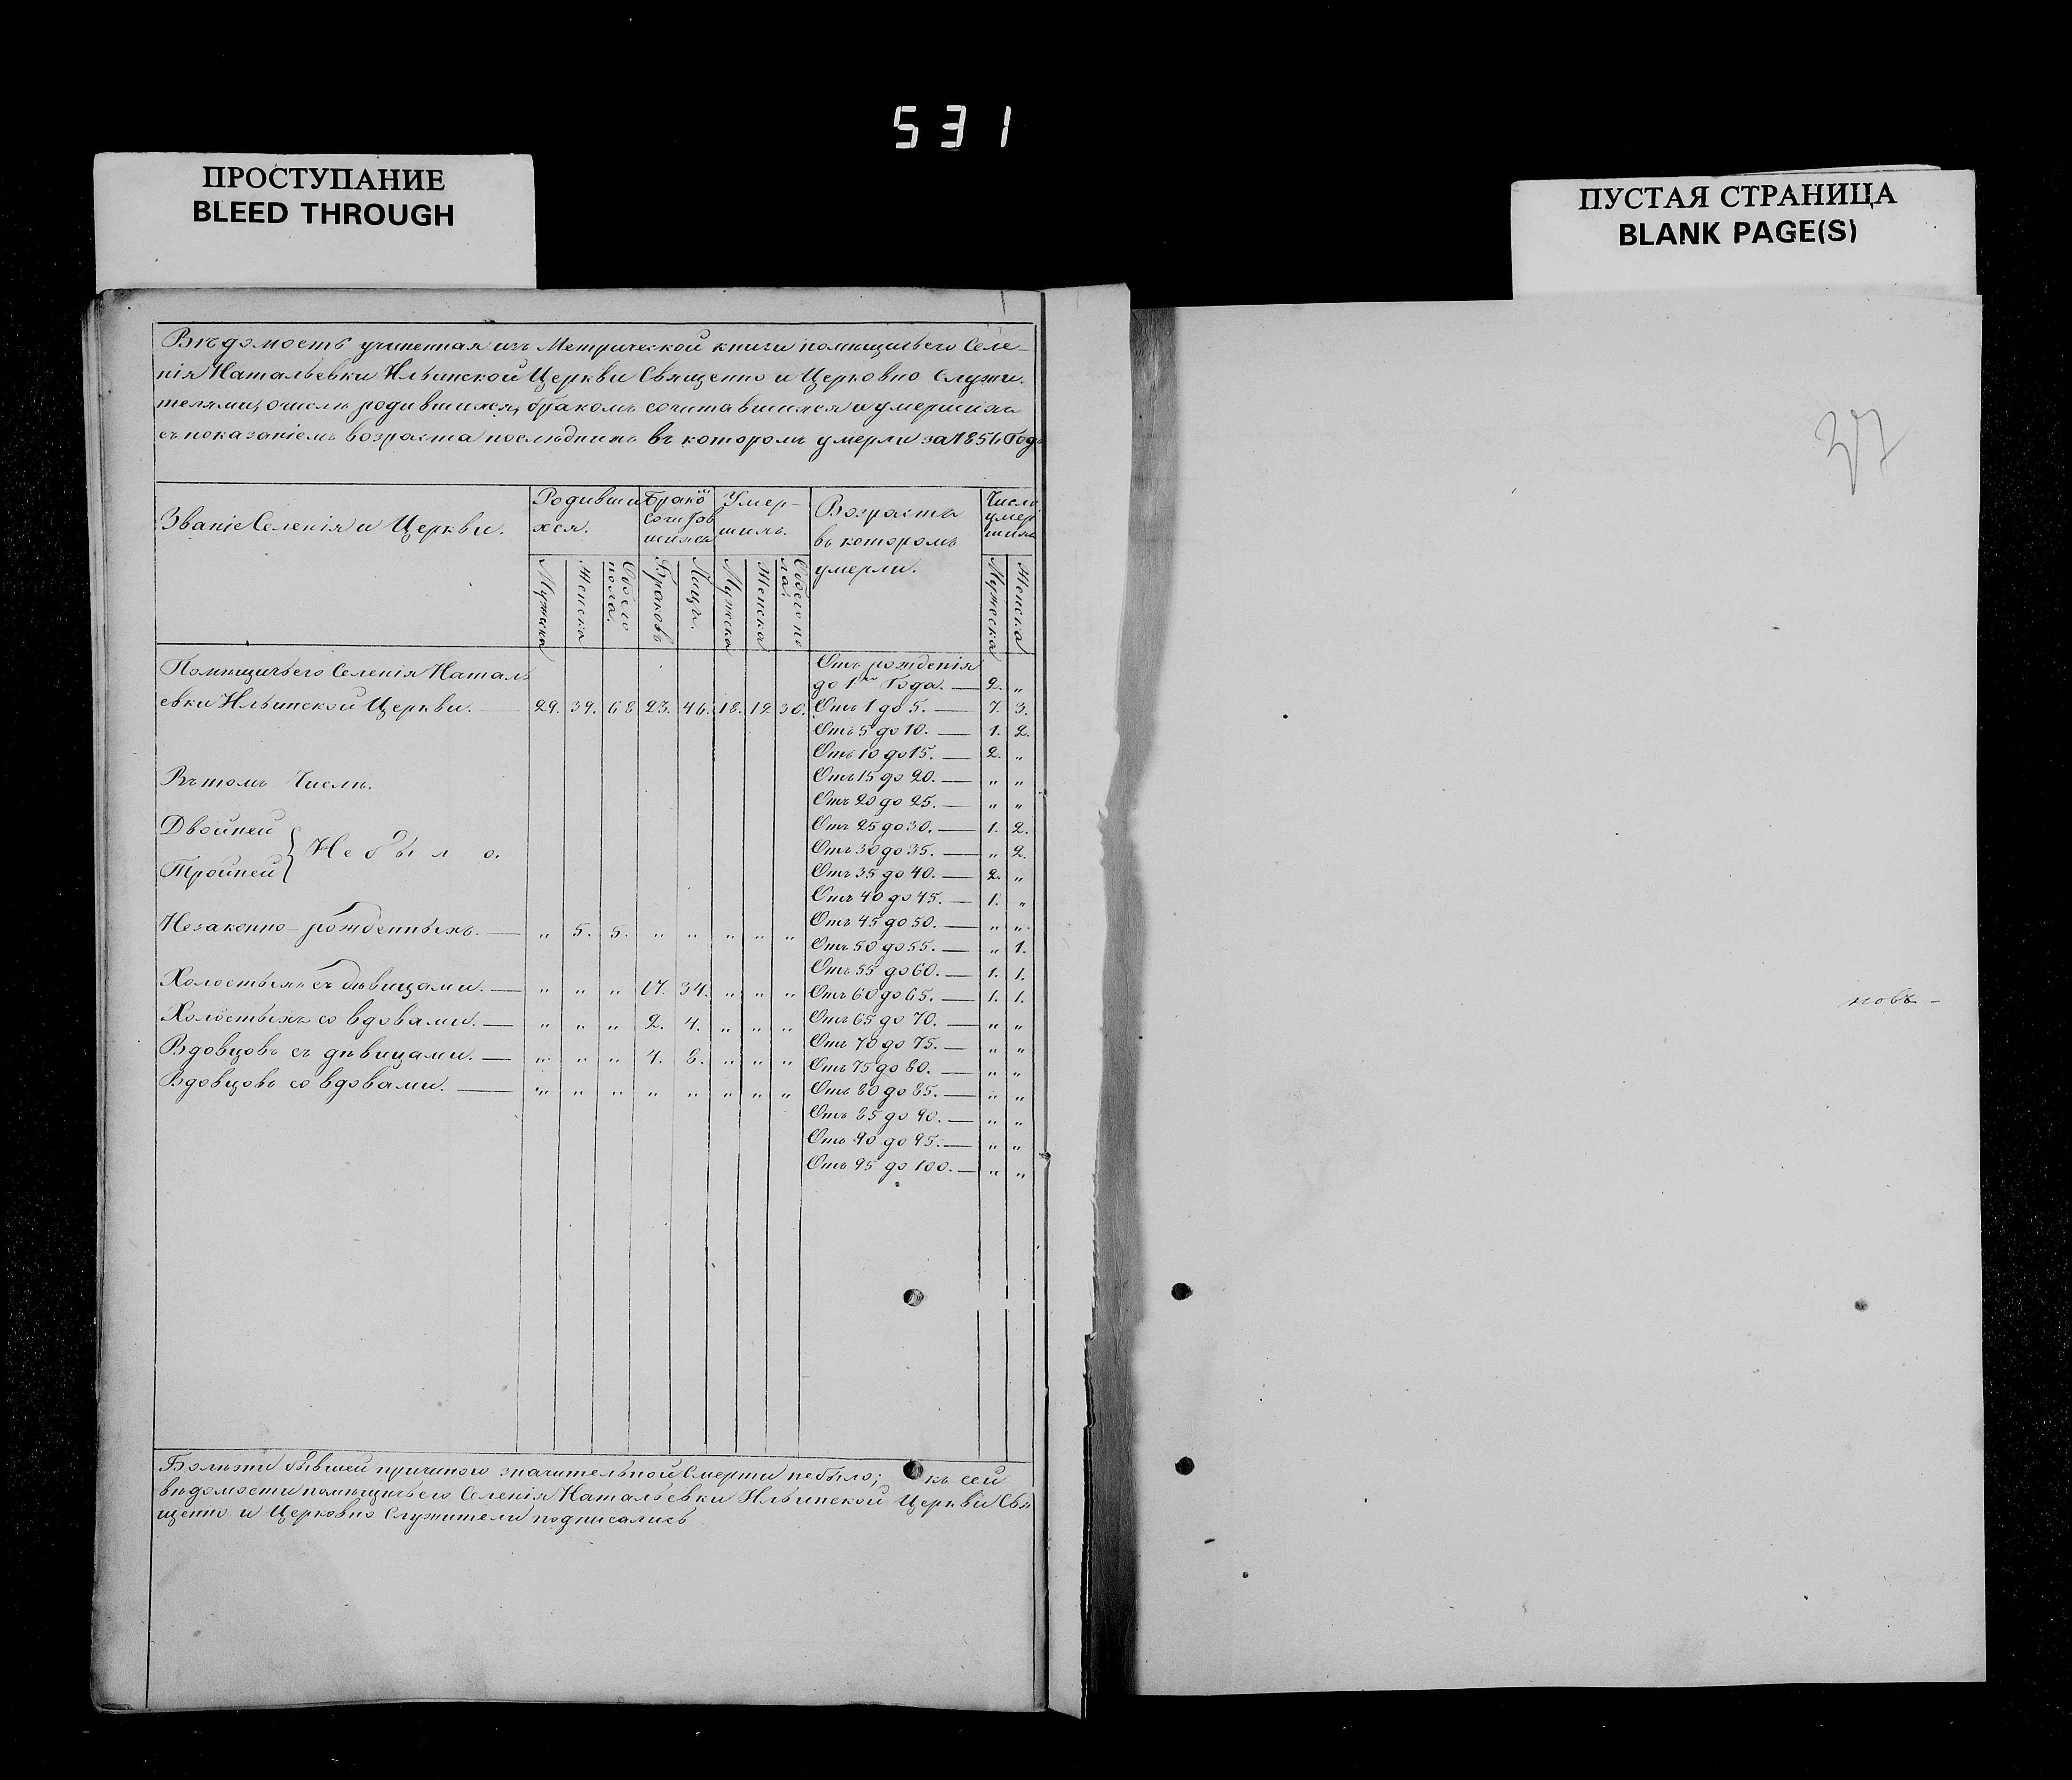 531
ПРОСТУПАНИЕ
BLEED THROUGH
ПУСТАЯ СТРАНИЦА
BLANK PAGE(S)
Вѣдомость учиненная изъ Метрической книги помѣщичьего Селе-
нія Натальевки Ильинской Церкви Священно и Церковно Служи-
телями, о числѣ родившихся, бракомъ сочитавшихся и умершихъ
съ показаніемъ возраста послѣднихъ въ которомъ умерли за 1851 Годъ
Званіе Селенія и Церкви. Родивши- Умер- Возраста Число
хся. шихъ. въ которомъ умер
умерли. шихъ
Мужеска Женска Обоего пола. Браковъ Лицъ. Мужеска Женска Обоего по ла. Мужеска Женска
Помѣщичьего Селенія Наталь Отъ рожденія
до 1го Года. — 2. „
евки Ильинской Церкви. — 29. 39. 68 23. 46. 18. 12 30. Отъ 1 до 5. — 7. 3.
Отъ 5 до 10. — 1. 2.
Отъ 10 до 15. — 2. „
Въ томъ Числѣ. Отъ 15 до 20. — „ „
Отъ 20 до 25. — „ „
Двойней Отъ 25 до 30. — 1. 2.
Не было. Отъ 30 до 35. — „ 2.
Тройней Отъ 35 до 40. — 2. „
Отъ 40 до 45. — 1. „
Незаконно-рожденныхъ. — „ 5. 5. „ „ „ „ „ Отъ 45 до 50. — „ „
Отъ 50 до 55. — „ 1.
Отъ 55 до 60. — 1. 1.
Холостыхъ съ дѣвицами. — „ „ „ 17. 34. „ „ „ Отъ 60 до 65. — 1. 1.
Холостыхъ со вдовами. — „ „ „ 2. 4. „ „ „ Отъ 65 до 70. — „ „
Отъ 70 до 75. — „ „
Вдовцовъ съ дѣвицами. — „ „ „ 4. 8. „ „ „ Отъ 75 до 80. — „ „
Вдовцовъ со вдовами. — „ „ „ „ „ „ „ „ Отъ 80 до 85. — „ „
Отъ 85 до 90. — „ „
Отъ 90 до 95. — „ „
Отъ 95 до 100. — „ „
Болѣзни бывшей причиною значительной Смерти небыло; къ сей
вѣдомости помѣщичьего Селенія Натальевки Ильинской Церкви Свя
щенно и Церковно Служители подписались
37
новъ -